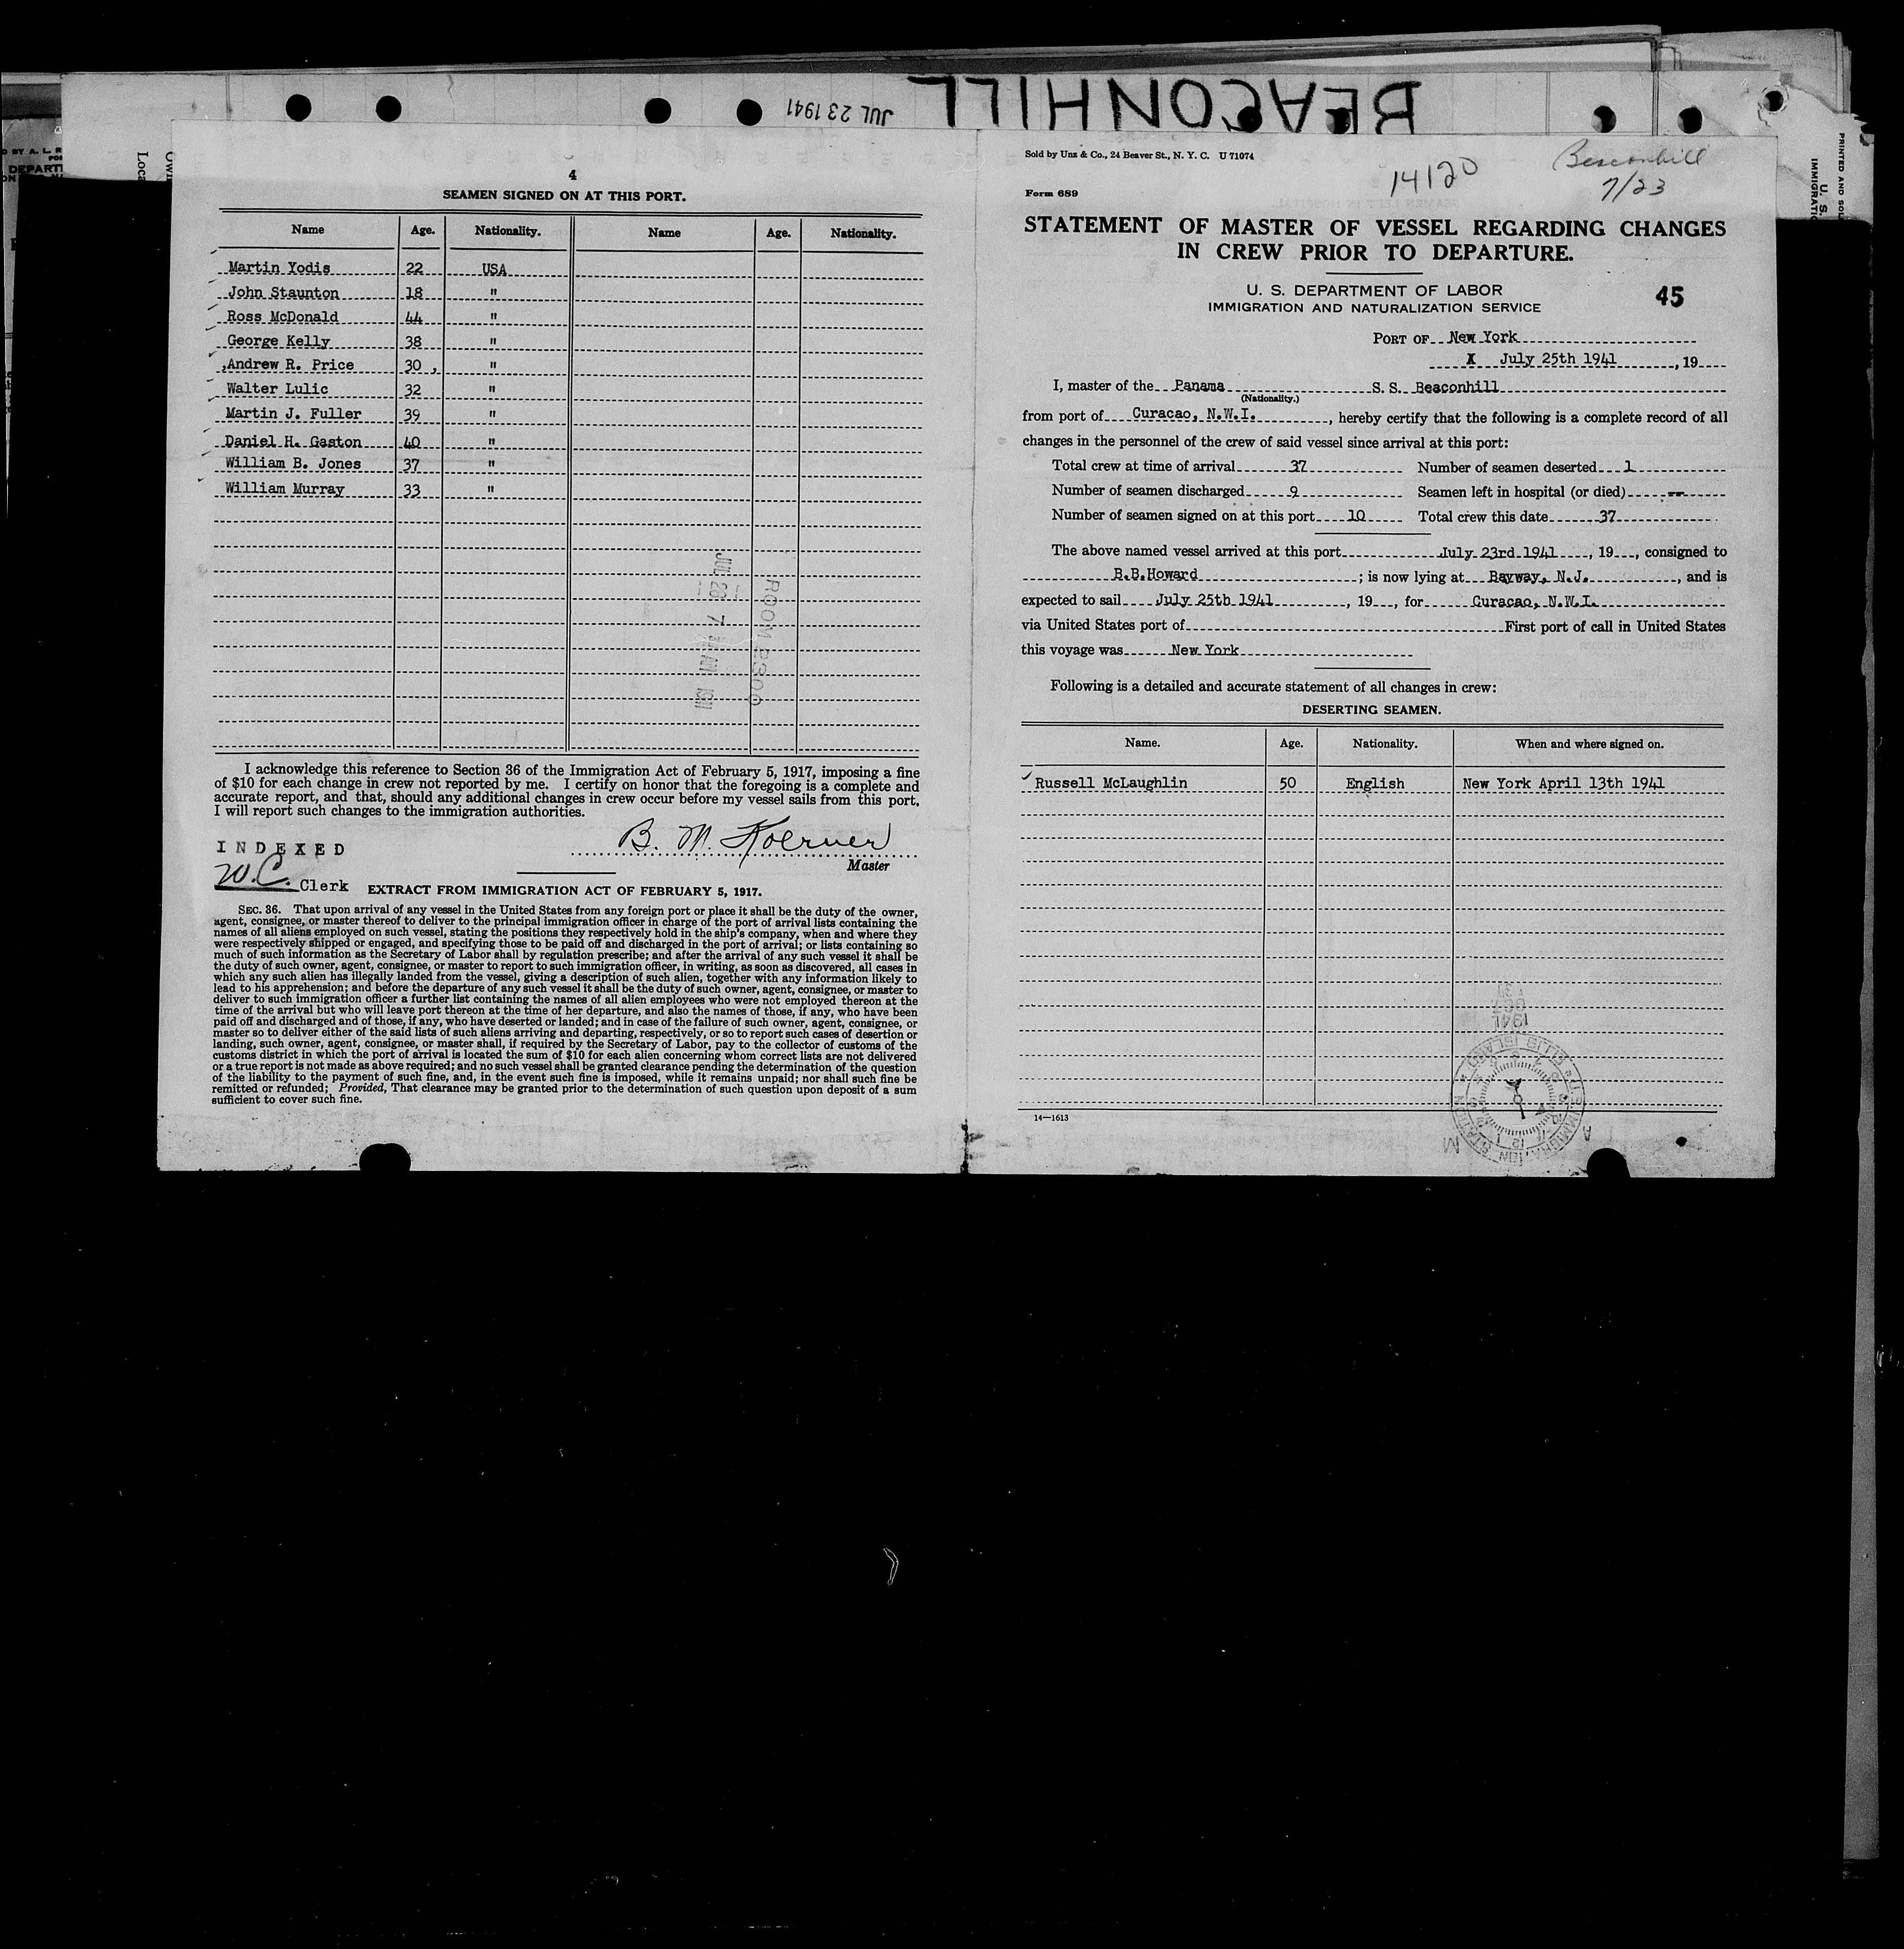 BEACONHILL
JUL 23 1941
4
SEAMEN SIGNED ON AT THIS PORT.
Name Age. Nationality. Name Age. Nationality.
Martin Yodis 22 USA
John Staunton 18 "
Ross McDonald 44 "
George Kelly 38 "
Andrew R. Price 30 "
Walter Lulic 32 "
Martin J. Fuller 39 "
Daniel H. Gaston 40 "
William B. Jones 37 "
William Murray 33 "
I acknowledge this reference to Section 36 of the Immigration Act of February 5, 1917, imposing a fine
of $10 for each change in crew not reported by me. I certify on honor that the foregoing is a complete and
accurate report, and that, should any additional changes in crew occur before my vessel sails from this port,
I will report such changes to the immigration authorities.
INDEXED
B. M. Koerner
Master
W.C. Clerk
EXTRACT FROM IMMIGRATION ACT OF FEBRUARY 5, 1917.
SEC. 36. That upon arrival of any vessel in the United States from any foreign port or place it shall be the duty of the owner,
agent, consignee, or master thereof to deliver to the principal immigration officer in charge of the port of arrival lists containing the
names of all aliens employed on such vessel, stating the positions they respectively hold in the ship's company, when and where they
were respectively shipped or engaged, and specifying those to be paid off and discharged in the port of arrival; or lists containing so
much of such information as the Secretary of Labor shall by regulation prescribe; and after the arrival of any such vessel it shall be
the duty of such owner, agent, consignee, or master to report to such immigration officer, in writing, as soon as discovered, all cases in
which any such alien has illegally landed from the vessel, giving a description of such alien, together with any information likely to
lead to his apprehension; and before the departure of any such vessel it shall be the duty of such owner, agent, consignee, or master to
deliver to such immigration officer a further list containing the names of all alien employees who were not employed thereon at the
time of the arrival but who will leave port thereon at the time of her departure, and also the names of those, if any, who have been
paid off and discharged and of those, if any, who have deserted or landed; and in case of the failure of such owner, agent, consignee, or
master so to deliver either of the said lists of such aliens arriving and departing, respectively, or so to report such cases of desertion or
landing, such owner, agent, consignee, or master shall, if required by the Secretary of Labor, pay to the collector of customs of the
customs district in which the port of arrival is located the sum of $10 for each alien concerning whom correct lists are not delivered
or a true report is not made as above required; and no such vessel shall be granted clearance pending the determination of the question
of the liability to the payment of such fine, and, in the event such fine is imposed, while it remains unpaid; nor shall such fine be
remitted or refunded; Provided, That clearance may be granted prior to the determination of such question upon deposit of a sum
sufficient to cover such fine.
Sold by Unz & Co., 24 Beaver St., N. Y. C. U 71074
14120
Beaconhill
7/23
Form 689
STATEMENT OF MASTER OF VESSEL REGARDING CHANGES
IN CREW PRIOR TO DEPARTURE.
U. S. DEPARTMENT OF LABOR
IMMIGRATION AND NATURALIZATION SERVICE
45
PORT OF New York
X July 25th 1941, 19
I, master of the Panama S. S. Beaconhill
(Nationality.)
from port of Curacao, N.W.I., hereby certify that the following is a complete record of all
changes in the personnel of the crew of said vessel since arrival at this port:
Total crew at time of arrival 37 Number of seamen deserted 1
Number of seamen discharged 9 Seamen left in hospital (or died) --
Number of seamen signed on at this port 10 Total crew this date 37
The above named vessel arrived at this port July 23rd 1941, 19, consigned to
B.B.Howard; is now lying at Bayway, N.J., and is
expected to sail July 25th 1941, 19, for Curacao, N.W.I.
via United States port of First port of call in United States
this voyage was New York
Following is a detailed and accurate statement of all changes in crew:
DESERTING SEAMEN.
Name. Age. Nationality. When and where signed on.
Russell McLaughlin 50 English New York April 13th 1941
14—1613